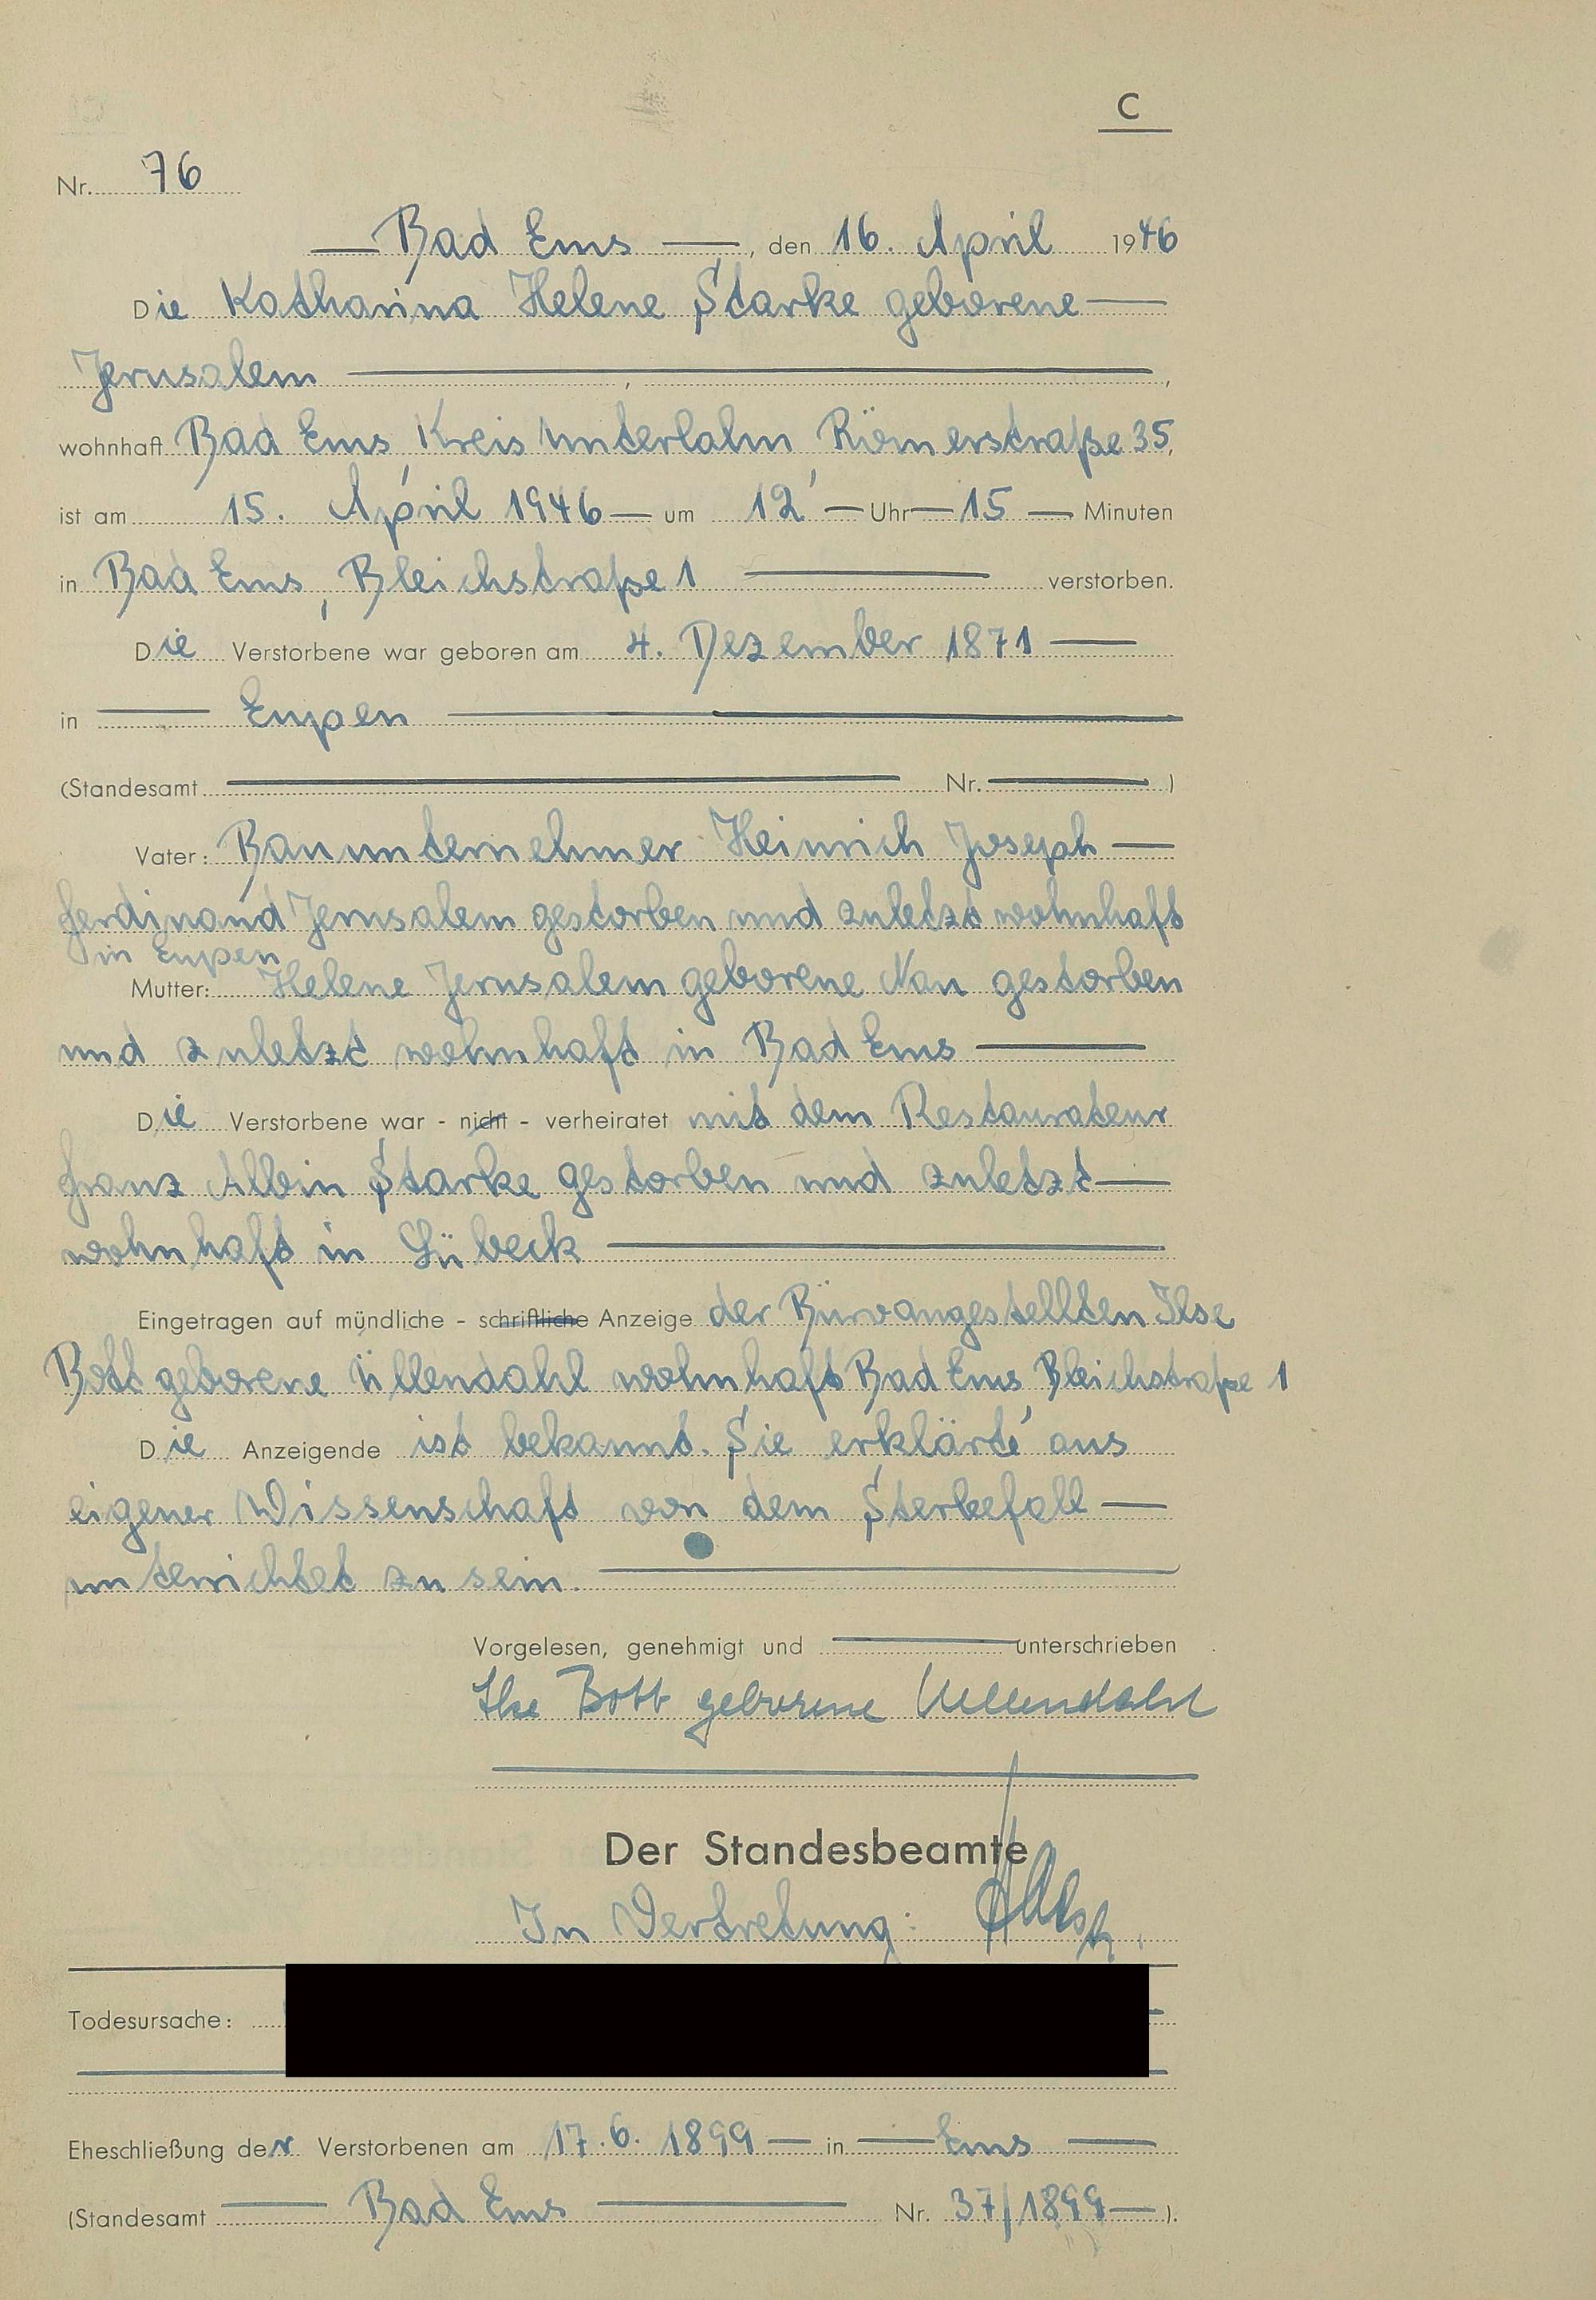 C
Nr. 76
Bad Ems, den 16. April 1946
Die Katharina Helene Starke geborene
Jerusalem,
wohnhaft Bad Ems, Kreis Unterlahn Römerstraße 35,
ist am 15. April 1946 um 12 Uhr 15 Minuten
in Bad Ems, Bleichstraße 1 verstorben.
Die Verstorbene war geboren am 4. Dezember 1871
in Eupen
(Standesamt Nr. )
Vater: Bauunternehmer Heinrich Joseph
Ferdinand Jerusalem gestorben und zuletzt wohnhaft
in Eupen
Mutter: Helene Jerusalem geborene Nau gestorben
und zuletzt wohnhaft in Bad Ems
Die Verstorbene war - nicht - verheiratet mit dem Restaurateur
Franz Albin Starke gestorben und zuletzt
wohnhaft in Lübeck
Eingetragen auf mündliche - schriftliche Anzeige der Büroangestellten Ilse
Bott geborene Üllendahl wohnhaft Bad Ems Bleichstraße 1
Die Anzeigende ist bekannt. Sie erklärte aus
eigener Wissenschaft von dem Sterbefall
unterrichtet zu sein.
Vorgelesen, genehmigt und unterschrieben
Ilse Bott geborene Uellendahl
Der Standesbeamte
In Vertretung:
Todesursache:
Eheschließung der Verstorbenen am 17.6.1899 in Ems
(Standesamt Bad Ems Nr. 37/1899 ).